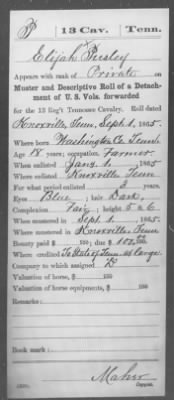 P | 13 Cav. | Tenn.
Elijah Presley
Appears with rank of Private on
Muster and Descriptive Roll of a Detach-
ment of U. S. Vols. forwarded
for the 13 Reg't Tennessee Cavalry. Roll dated
Knoxville Tenn, Sept. 1, 1865.
Where born Washington Co. Tenn
Age 18 years; occupation, Farmer
When enlisted Jany. 1, 1865
Where enlisted Knoxville Tenn
For what period enlisted 3 years.
Eyes Blue; hair Dark,
Complexion Fair; height 5 ft. 6 in.
When mustered in Sept. 1, 1865.
Where mustered in Knoxville, Tenn
Bounty paid $ 100; due $ 100
Where credited To State of Tenn at large
Company to which assigned D
Valuation of horse, $ 100
Valuation of horse equipments, $ 100
Remarks:
Book mark:
Maher
Copyist.